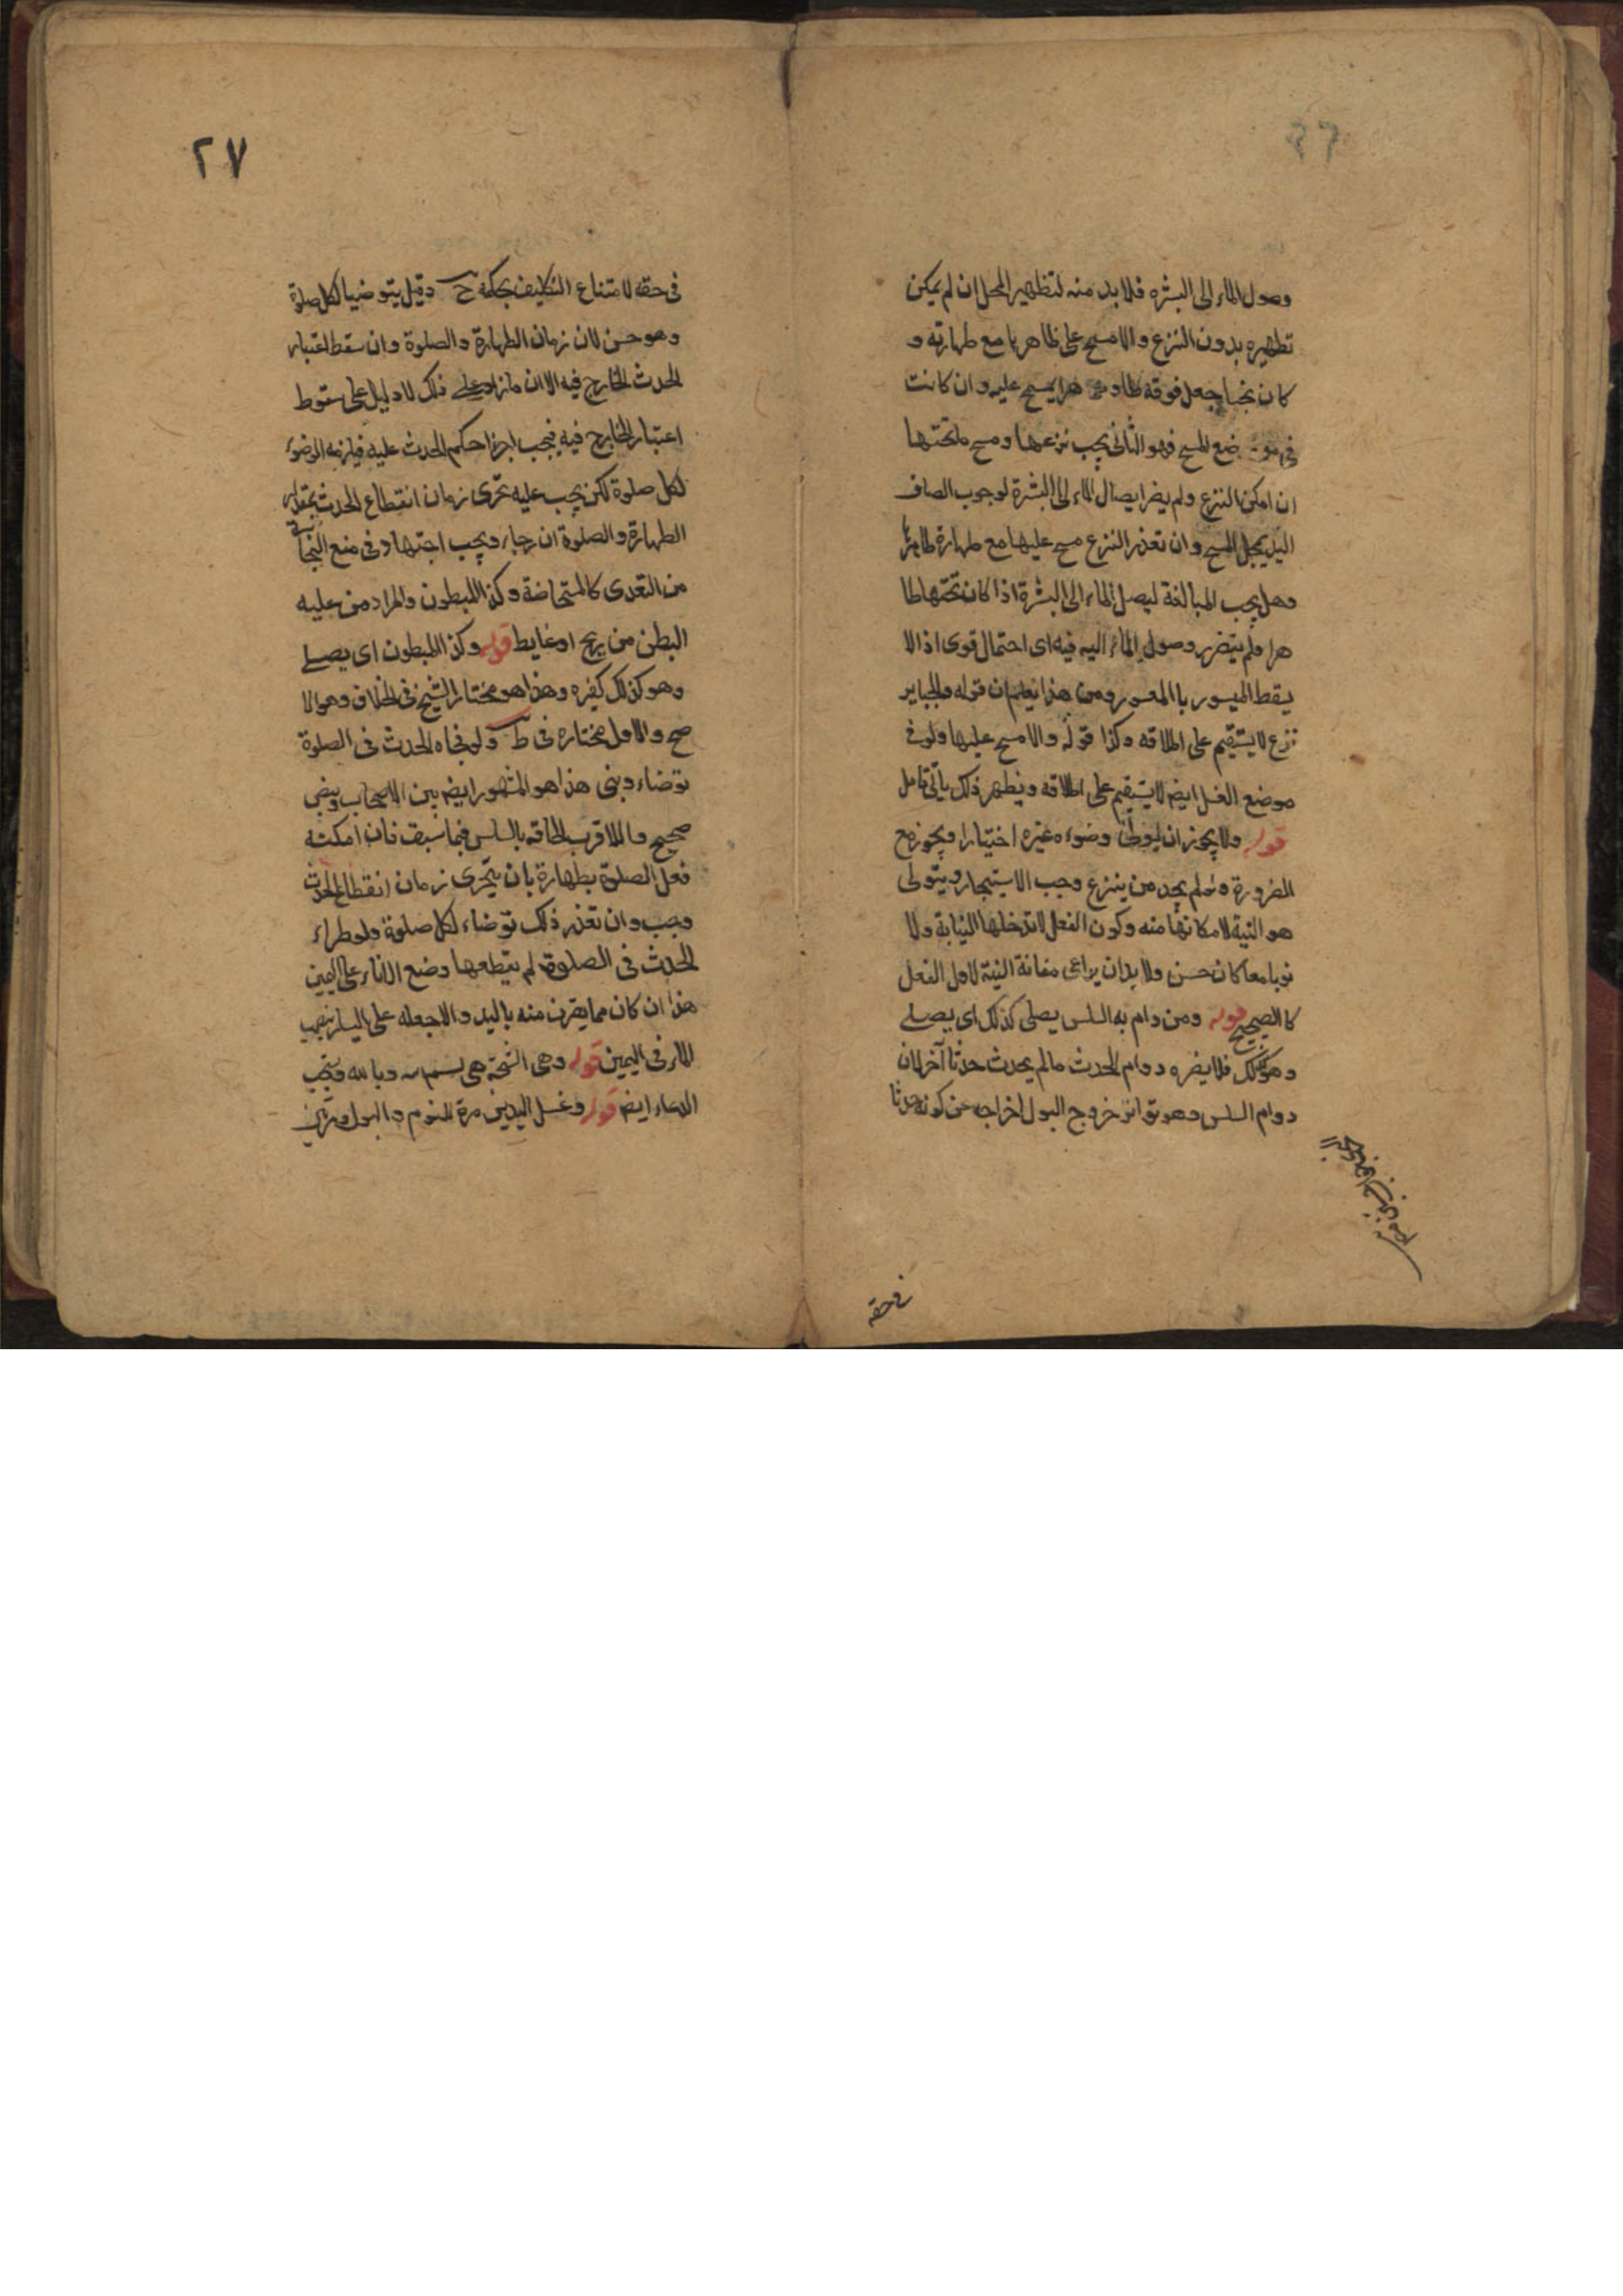 وصول الماء الى البشره فلا بد منه لتطهير المحل ان لم يمكن
تطهيره بدون النزع والا مسح على ظاهرها مع طهارته و
كان نجسا جعل فوقه طاهرا يمسح عليه وان كانت
فى موضع المسح فهو الثانى يجب نزعها ومسح ما تحتها
ان امكن النزع ولم يضر ايصال الماء الى البشرة لوجوب الصاق
اليد بمحل المسح وان تعذر النزع مسح عليها مع طهارة ظاهرها
وهل يجب المبالغة ليصل الماء الى البشرة اذا كان تحتها طا
هرا ولم يتضرر وصول الماء اليه فيه اى احتمال قوى اذ الا
يسقط الميسور با المعسور ومن هذا يعلم ان قوله والجباير
تنزع لا يستقيم على اطلاقه وكذا قوله والا مسح عليها ولو فى
موضع الغسل ايض لا يستقيم على اطلاقه ويظهر ذلك باتى تامل
قوله ولا يجوز ان يولى وضوءه غيره اختيارا ويجوز مع
الضرورة ولو لم يجد من ينزع وجب الاستيجار ويتولى
هو النية لامكانها منه وكون الفعل لا تدخلها النيابة ولا
نويا معا كان حسن ولا بد ان يراعى مقانة النية لاول الفعل
كا الصحيح قوله ومن دام به السلس يصلى كذلك اى يصلى
وهو كذلك فلا يضره دوام الحدث مالم يحدث حدثا آخر لان
دوام السلس وهو تواتر خروج البول اخراجه عن كونه حدثا
فى حقه
٢٧
فى حقه لامتناع التكليف بحكمه ح وقيل يتوضيا لكل صلوة
وهو حسن لان زمان الطهارة والصلوة وان سقط اعتبار
الحدث الخارج فيه الا ان ما زاد على ذلك لا دليل على سقوط
اعتبار الخارج فيه فيجب اجزا حكم الحدث عليه فيلزمه الوضوء
لكل صلوة لكن يجب عليه تحرى زمان انقطاع الحدث بمقدار
الطهارة والصلوة ان رجاه ويجب اجتهاد فى منع النجاسة
من التعدى كالمستحاضة وكذا المبطون والمراد من عليه
البطن من ريح او غايط قوله وكذا المبطون اى يصلى
وهو كذلك كغيره وهذا هو مختار الشيخ فى الخلاف وهو الا
صح والاول مختاره فى ط ولو فجاه الحدث فى الصلوة
توضاء وبنى هذا هو المشهور ايض بين الاصحاب وبنص
صحيح والاقرب الحاقه بالسلس فيما سبق فان امكنه
فعل الصلوة بطهارة بان يتحرى زمان انقطاع الحدث
وجب وان تعذر ذلك توضاء لكل صلوة ولو طراء
الحدث فى الصلوة لم يقطعها وضع الاناء على اليمين
هذا ان كان مما يغرف منه باليد والا جعله على اليسار ليصب
الماء فى اليمين قوله وهى التسمية هى بسم الله وبا لله ويستحب
الدعاء ايض قوله وغسل اليدين مرة للنوم والبول ومرتين